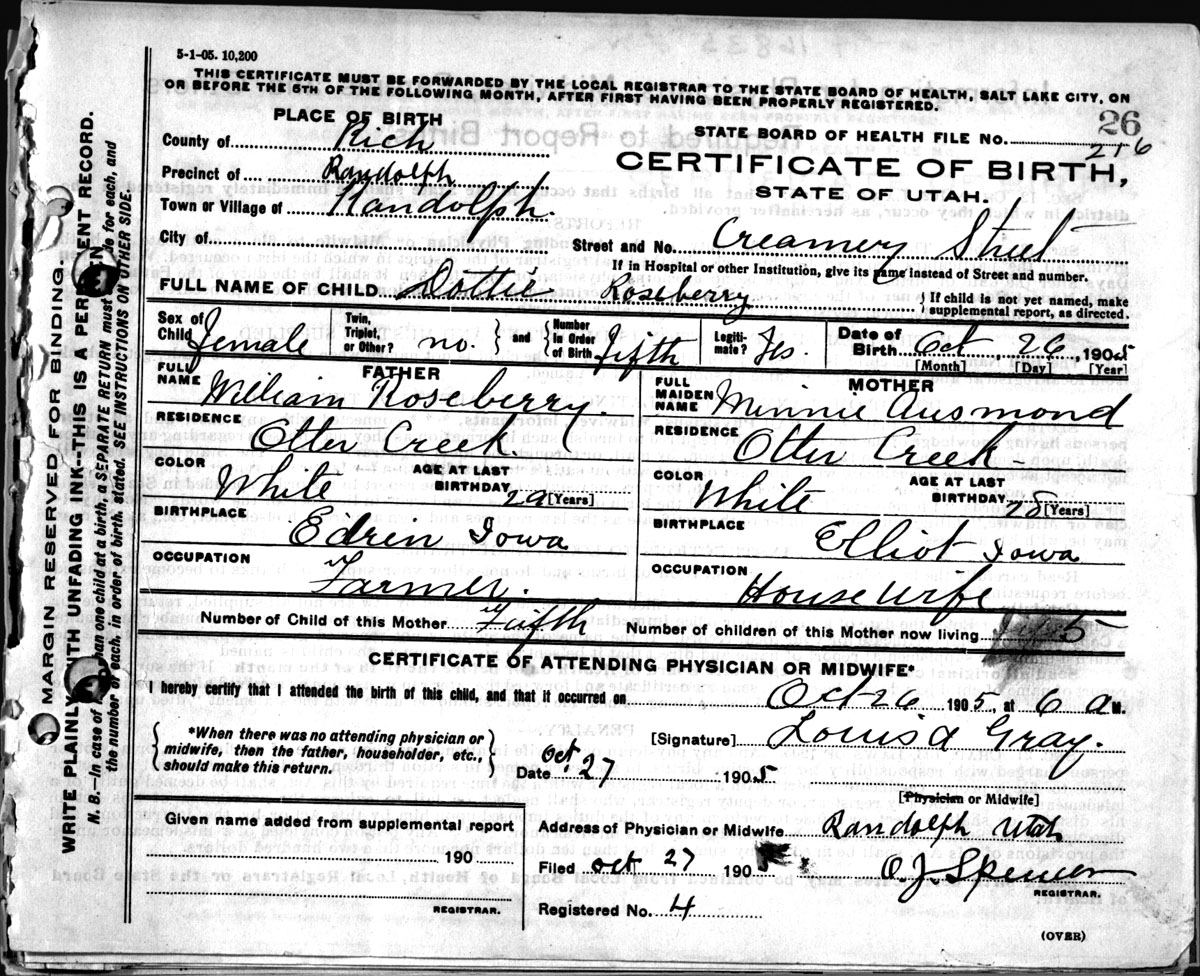 5-1-05. 10,200
THIS CERTIFICATE MUST BE FORWARDED BY THE LOCAL REGISTRAR TO THE STATE BOARD OF HEALTH, SALT LAKE CITY, ON
OR BEFORE THE 5TH OF THE FOLLOWING MONTH, AFTER FIRST HAVING BEEN PROPERLY REGISTERED.
PLACE OF BIRTH
County of Rich
Precinct of Randolph
Town or Village of Randolph.
City of
STATE BOARD OF HEALTH FILE NO. 26
216
CERTIFICATE OF BIRTH,
STATE OF UTAH.
Street and No. Creamery Street
If in Hospital or other Institution, give its name instead of Street and number.
FULL NAME OF CHILD Dottie Roseberry
} If child is not yet named, make
supplemental report, as directed.
Sex of Child Female
Twin, Triplet, or Other? no. } and { Number in Order of Birth Fifth
Legiti-mate? Yes.
Date of Birth Oct, 26, 1905
[Month] [Day] [Year]
FATHER
FULL NAME William Roseberry.
RESIDENCE Otter Creek.
COLOR White
AGE AT LAST BIRTHDAY 29 [Years]
BIRTHPLACE Iowa
OCCUPATION Farmer.
MOTHER
FULL MAIDEN NAME Minnie Ausmond
RESIDENCE Otter Creek
COLOR White
AGE AT LAST BIRTHDAY 28 [Years]
BIRTHPLACE Elliot Iowa
OCCUPATION House Wife
Number of Child of this Mother Fifth
Number of children of this Mother now living 5
CERTIFICATE OF ATTENDING PHYSICIAN OR MIDWIFE*
I hereby certify that I attended the birth of this child, and that it occurred on Oct 26 1905, at 6 a M.
{ *When there was no attending physician or
midwife, then the father, householder, etc.,
should make this return. }
[Signature] Louisa Gray.
Date Oct. 27 1905
[Physician or Midwife]
Given name added from supplemental report
190
REGISTRAR.
Address of Physician or Midwife Randolph Utah
Filed Oct 27 1905
O.J. Spencer
REGISTRAR.
Registered No. 4
(OVER)
MARGIN RESERVED FOR BINDING
WRITE PLAINLY WITH UNFADING INK--THIS IS A PERMANENT RECORD.
N. B.--In case of than one child at a birth, a SEPARATE RETURN must be made for each, and
the number of each, in order of birth, stated. SEE INSTRUCTIONS ON OTHER SIDE